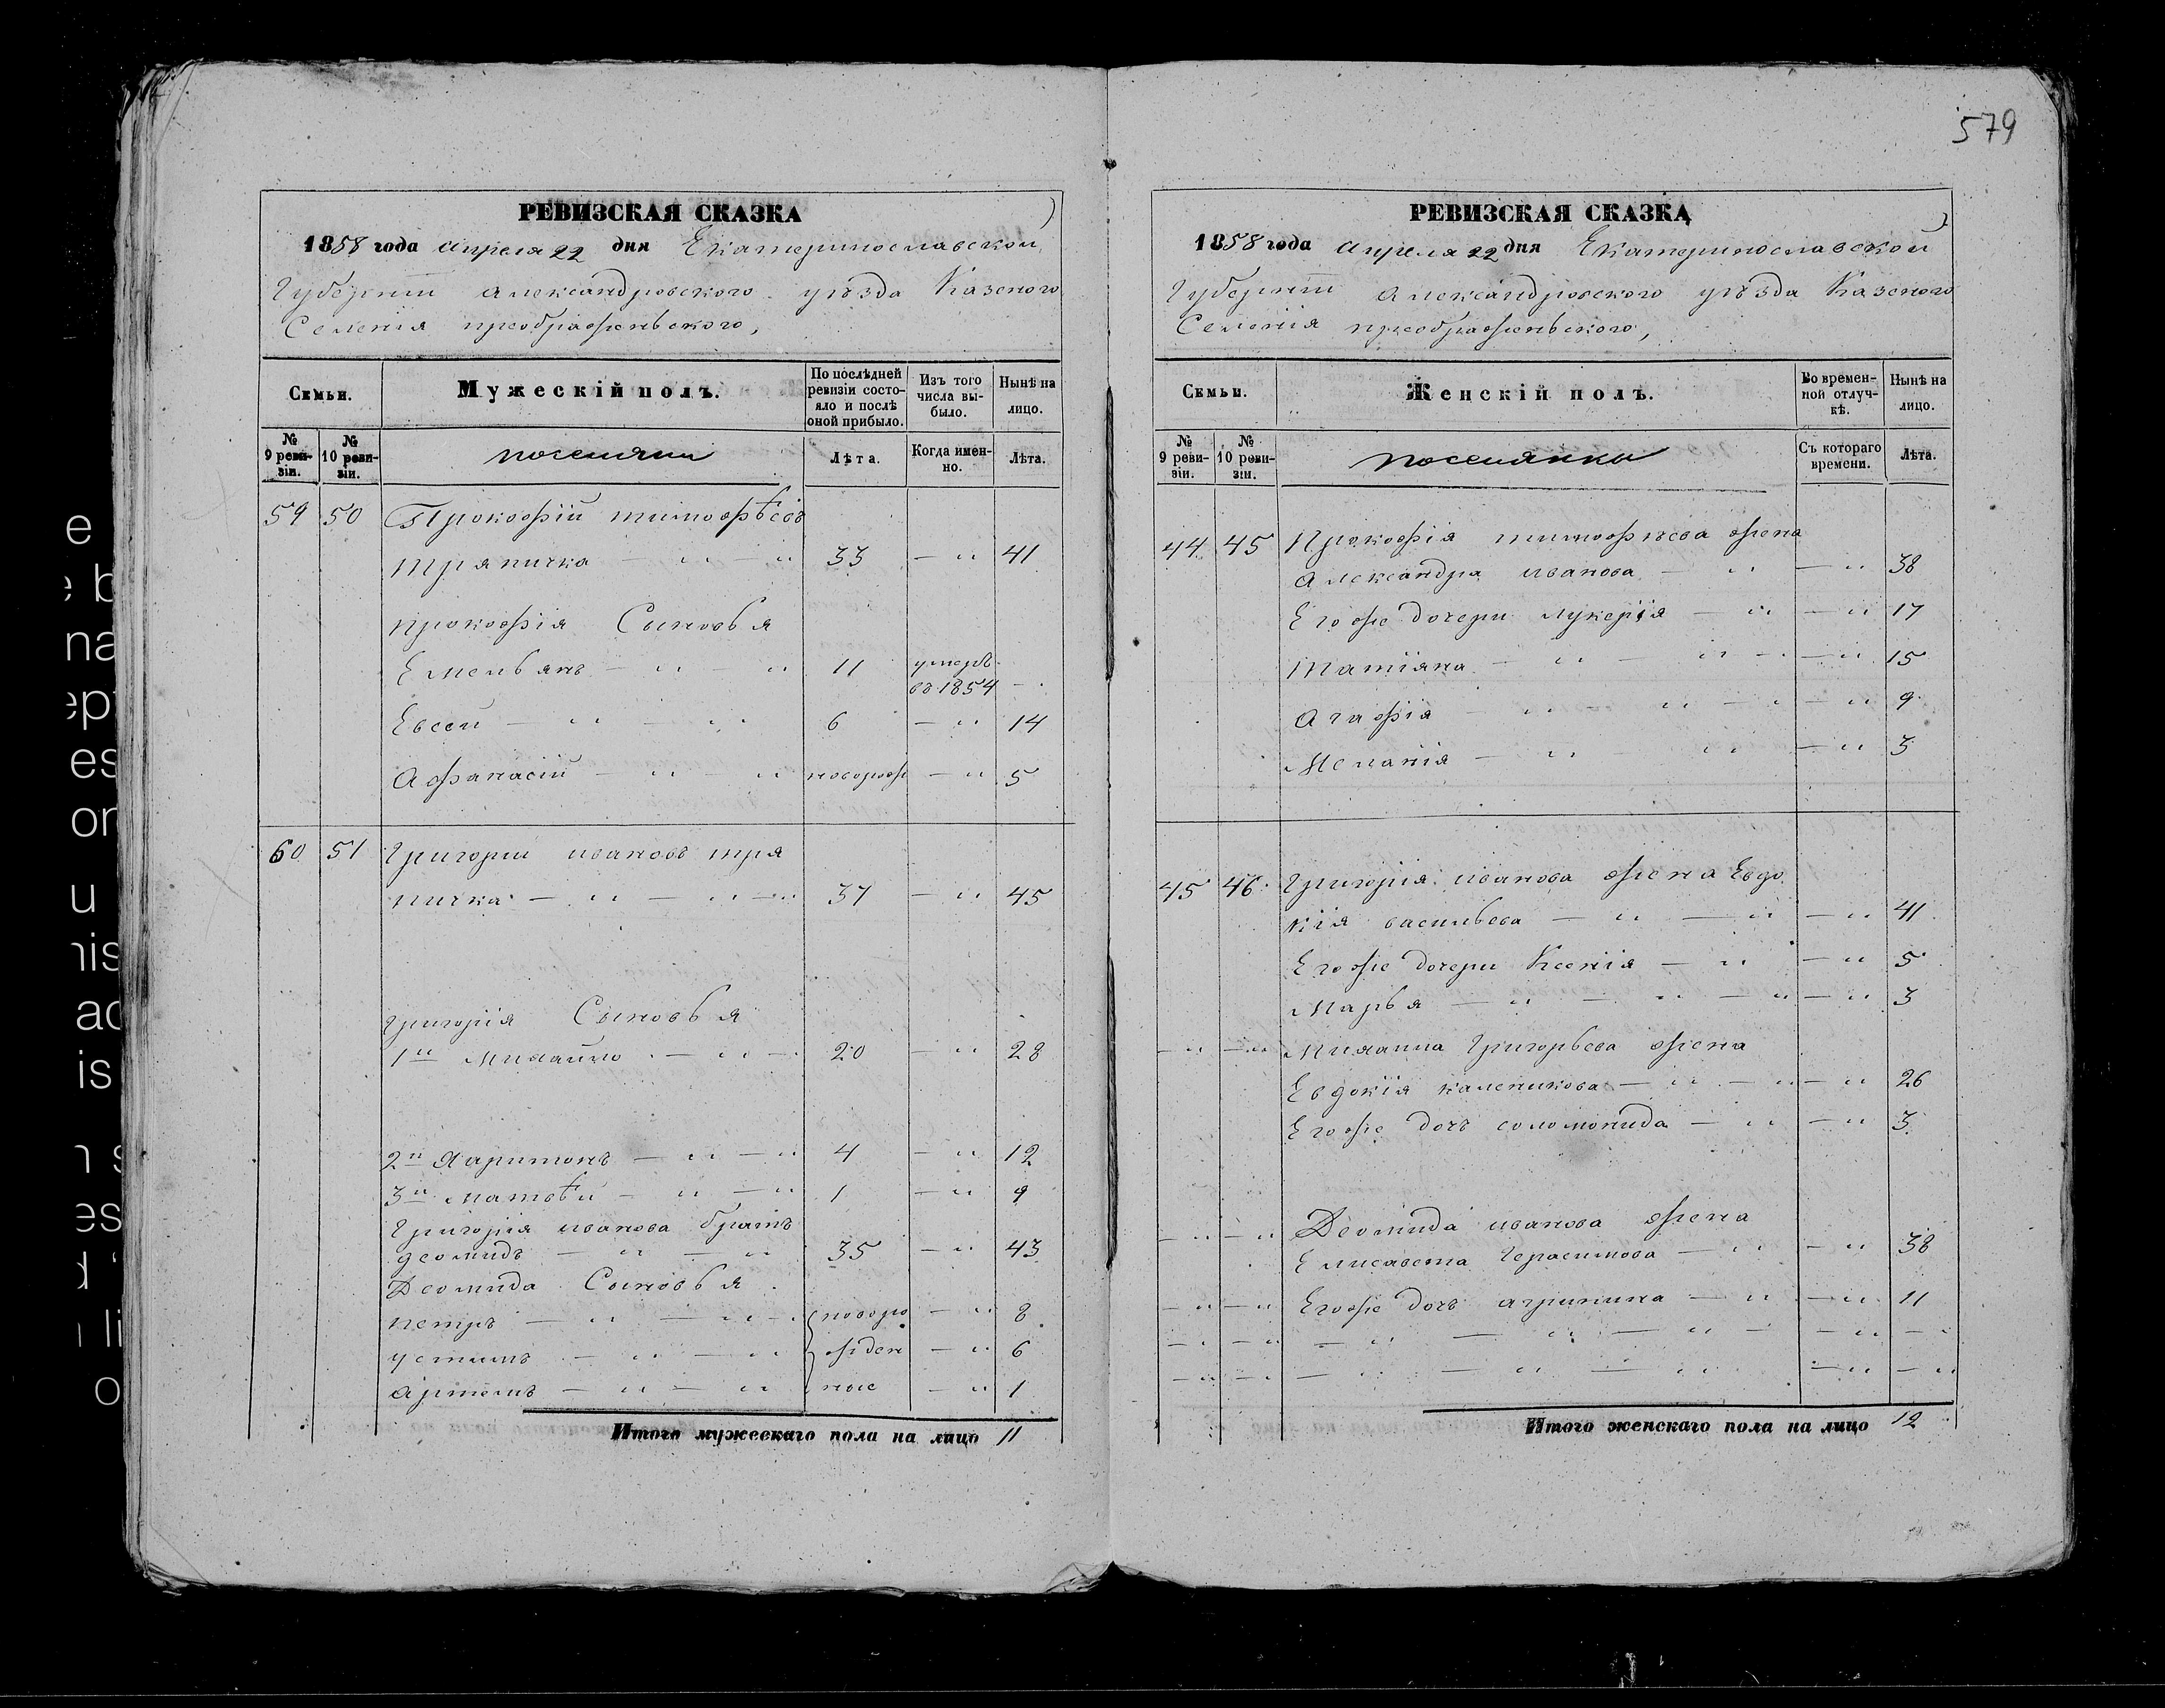 579
РЕВИЗСКАЯ СКАЗКА
1858 года апреля 22 дня Екатеринославской
Губернiи александровского уѣзда Казеного
Селенiя преображеньского,
Семьи.
Мужескiй полъ.
По послѣдней ревизiи состояло и послѣ оной прибыло.
Изъ того числа выбыло.
Нынѣ на лицо.
№ 9 ревизiи.
№ 10 ревизiи.
поселяни
Лѣта.
Когда именно.
Лѣта.
59 50 Прокофiй тимофѣевъ
тряпичка — " — " 33 — " 41
прокофiя Сыновья
Емельянъ — " — " 11 умеръ въ 1854 —
Евсей — " — " 6 — " 14
Афанасiй — " — " новорож — " 5
60 51 Григорiй ивановъ тря
пичка — " — " — " 37 — " 45
григорiя Сыновья
1й Михайло — " — 20 — " 28
2й Харитонъ — " — " 4 — " 12
3й матвѣй — " — " 1 — " 9
Григорiя иванова братъ
деомидъ — " — " 35 — " 43
Деомида Сыновья
петръ — " — " — новоро — " 8
устимъ — " — " жден — " 6
артемъ — " — " ные — " 1
Итого мужескаго пола на лицо 11
РЕВИЗСКАЯ СКАЗКА
1858 года апреля 22 дня Екатеринославской
Губернiи александровского уѣзда Казеного
Селенiя преображеньского,
Семьи.
Женскiй полъ.
Во временной отлучкѣ.
Нынѣ на лицо.
№ 9 ревизiи.
№ 10 ревизiи.
поселянки
Съ котораго времени.
Лѣта.
44 45 Прокофiя тимофѣева жена
александра иванова — " — " 38
Егоже дочери лукерiя — " — " 17
Татiяна — " — " — — " 15
агафiя — " — " — " — " 9
Меланiя — " — " — " 3
45 46 Григорiя иванова жена Евдо
кiя васильева — " — " — " 41
Егоже дочери Ксенiя — " — " 5
Марья — " — " — " — " 3
— " — " Михаила Григорьева жена
Евдокiя каленикова — " — " — " 26
Егоже дочь соломонида — " — " 3
— " — " Деомида иванова жена
Елисавета Герасимова — " — " 38
— " — " Егоже дочь агрипина — " — " 11
— " — " — " — " — " — — " — "
— " — " — " — " — " — " — "
Итого женскаго пола на лицо 12